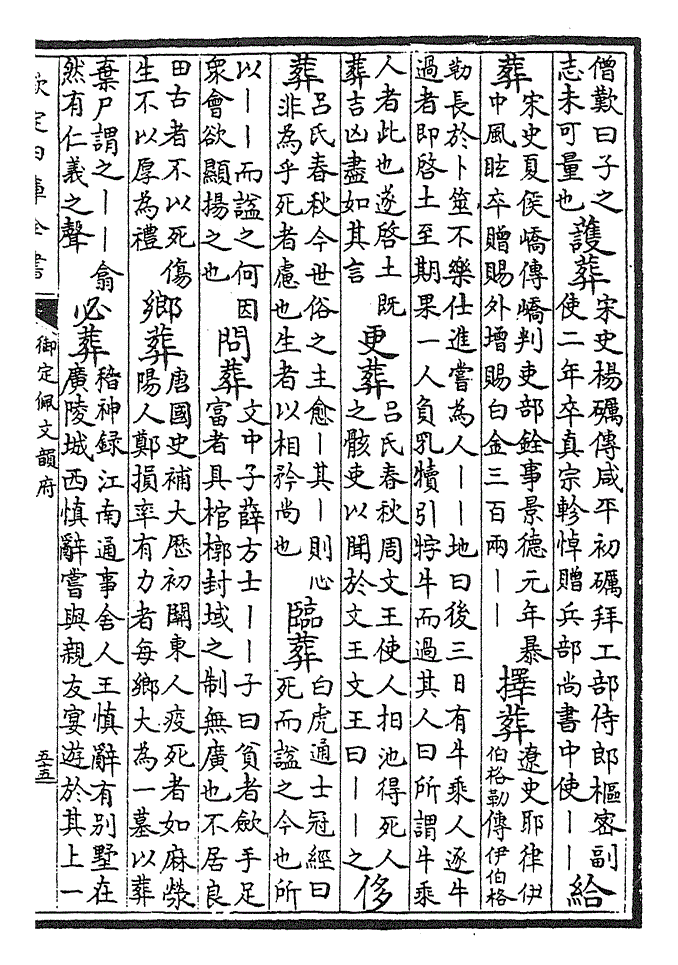 僧歎曰子之
志未可量也
護葬
宋史楊礪傳咸平初礪拜工部侍郎樞密副
使二年卒真宗軫悼贈兵部尚書中使丨丨
給
葬
宋史夏侯嶠傳嶠判吏部銓事景德元年暴
中風眩卒贈賜外增賜白金三百兩丨丨
擇葬
遼史耶律伊
伯格勒傳伊伯格
勒長於卜筮不樂仕進嘗為人丨丨地曰後三日有牛乘人逐牛
過者即啓土至期果一人負乳犢引牸牛而過其人曰所謂牛乘
人者此也遂啓土既
葬吉凶盡如其言
更葬
呂氏春秋周文王使人抇池得死人
之骸吏以聞於文王文王曰丨丨之
侈
葬
呂氏春秋今世俗之主愈丨其丨則心
非為乎死者慮也生者以相矜尚也
臨葬
白虎通士冠經曰
死而諡之今也所
以丨丨而諡之何因
衆會欲顯揚之也
問葬
文中子薛方士丨丨子曰貧者斂手足
富者具棺槨封域之制無廣也不居良
田古者不以死傷
生不以厚為禮
鄉葬
唐國史補大厯初關東人疫死者如麻滎
陽人鄭損率有力者每鄉大為一墓以葬
棄尸謂之丨丨翕
然有仁義之聲
必葬
稽神録江南通事舍人王慎辭有別墅在
廣陵城西慎辭嘗與親友宴遊於其上一
欽定四庫全書
御定佩文韻府
五十五